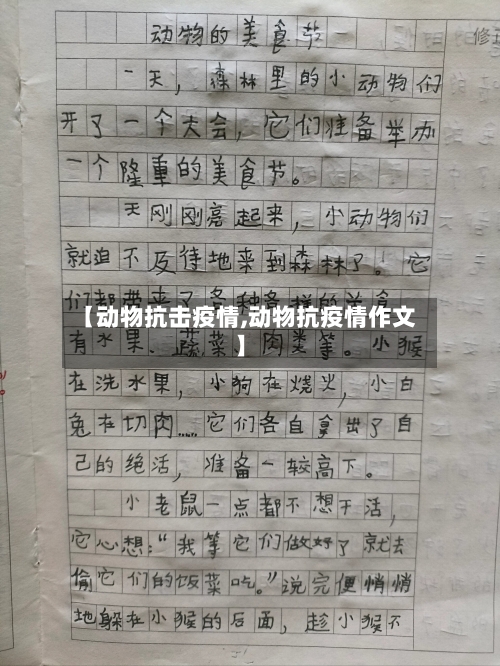 动物的美食节
修正
一天，森林里的小动物们
开了一个大会，它们准备举办
一个隆重的美食节。
天刚刚亮起来，小动物们
就迫不及待地来到森林了。它
们都带来了各种各样的美食，
【动物抗击疫情,动物抗疫情作文
】
有水果、蔬菜、肉类等。小猴
在洗水果，小狗在烧火，小白
兔在切肉……它们各自拿出了自
己的绝活，准备一较高下。
小老鼠一点都不想干活，
它心想：“我等它们做好了就去
偷它们的饭菜吃。”说完便悄悄
地躲在小猴的后面，趁小猴不